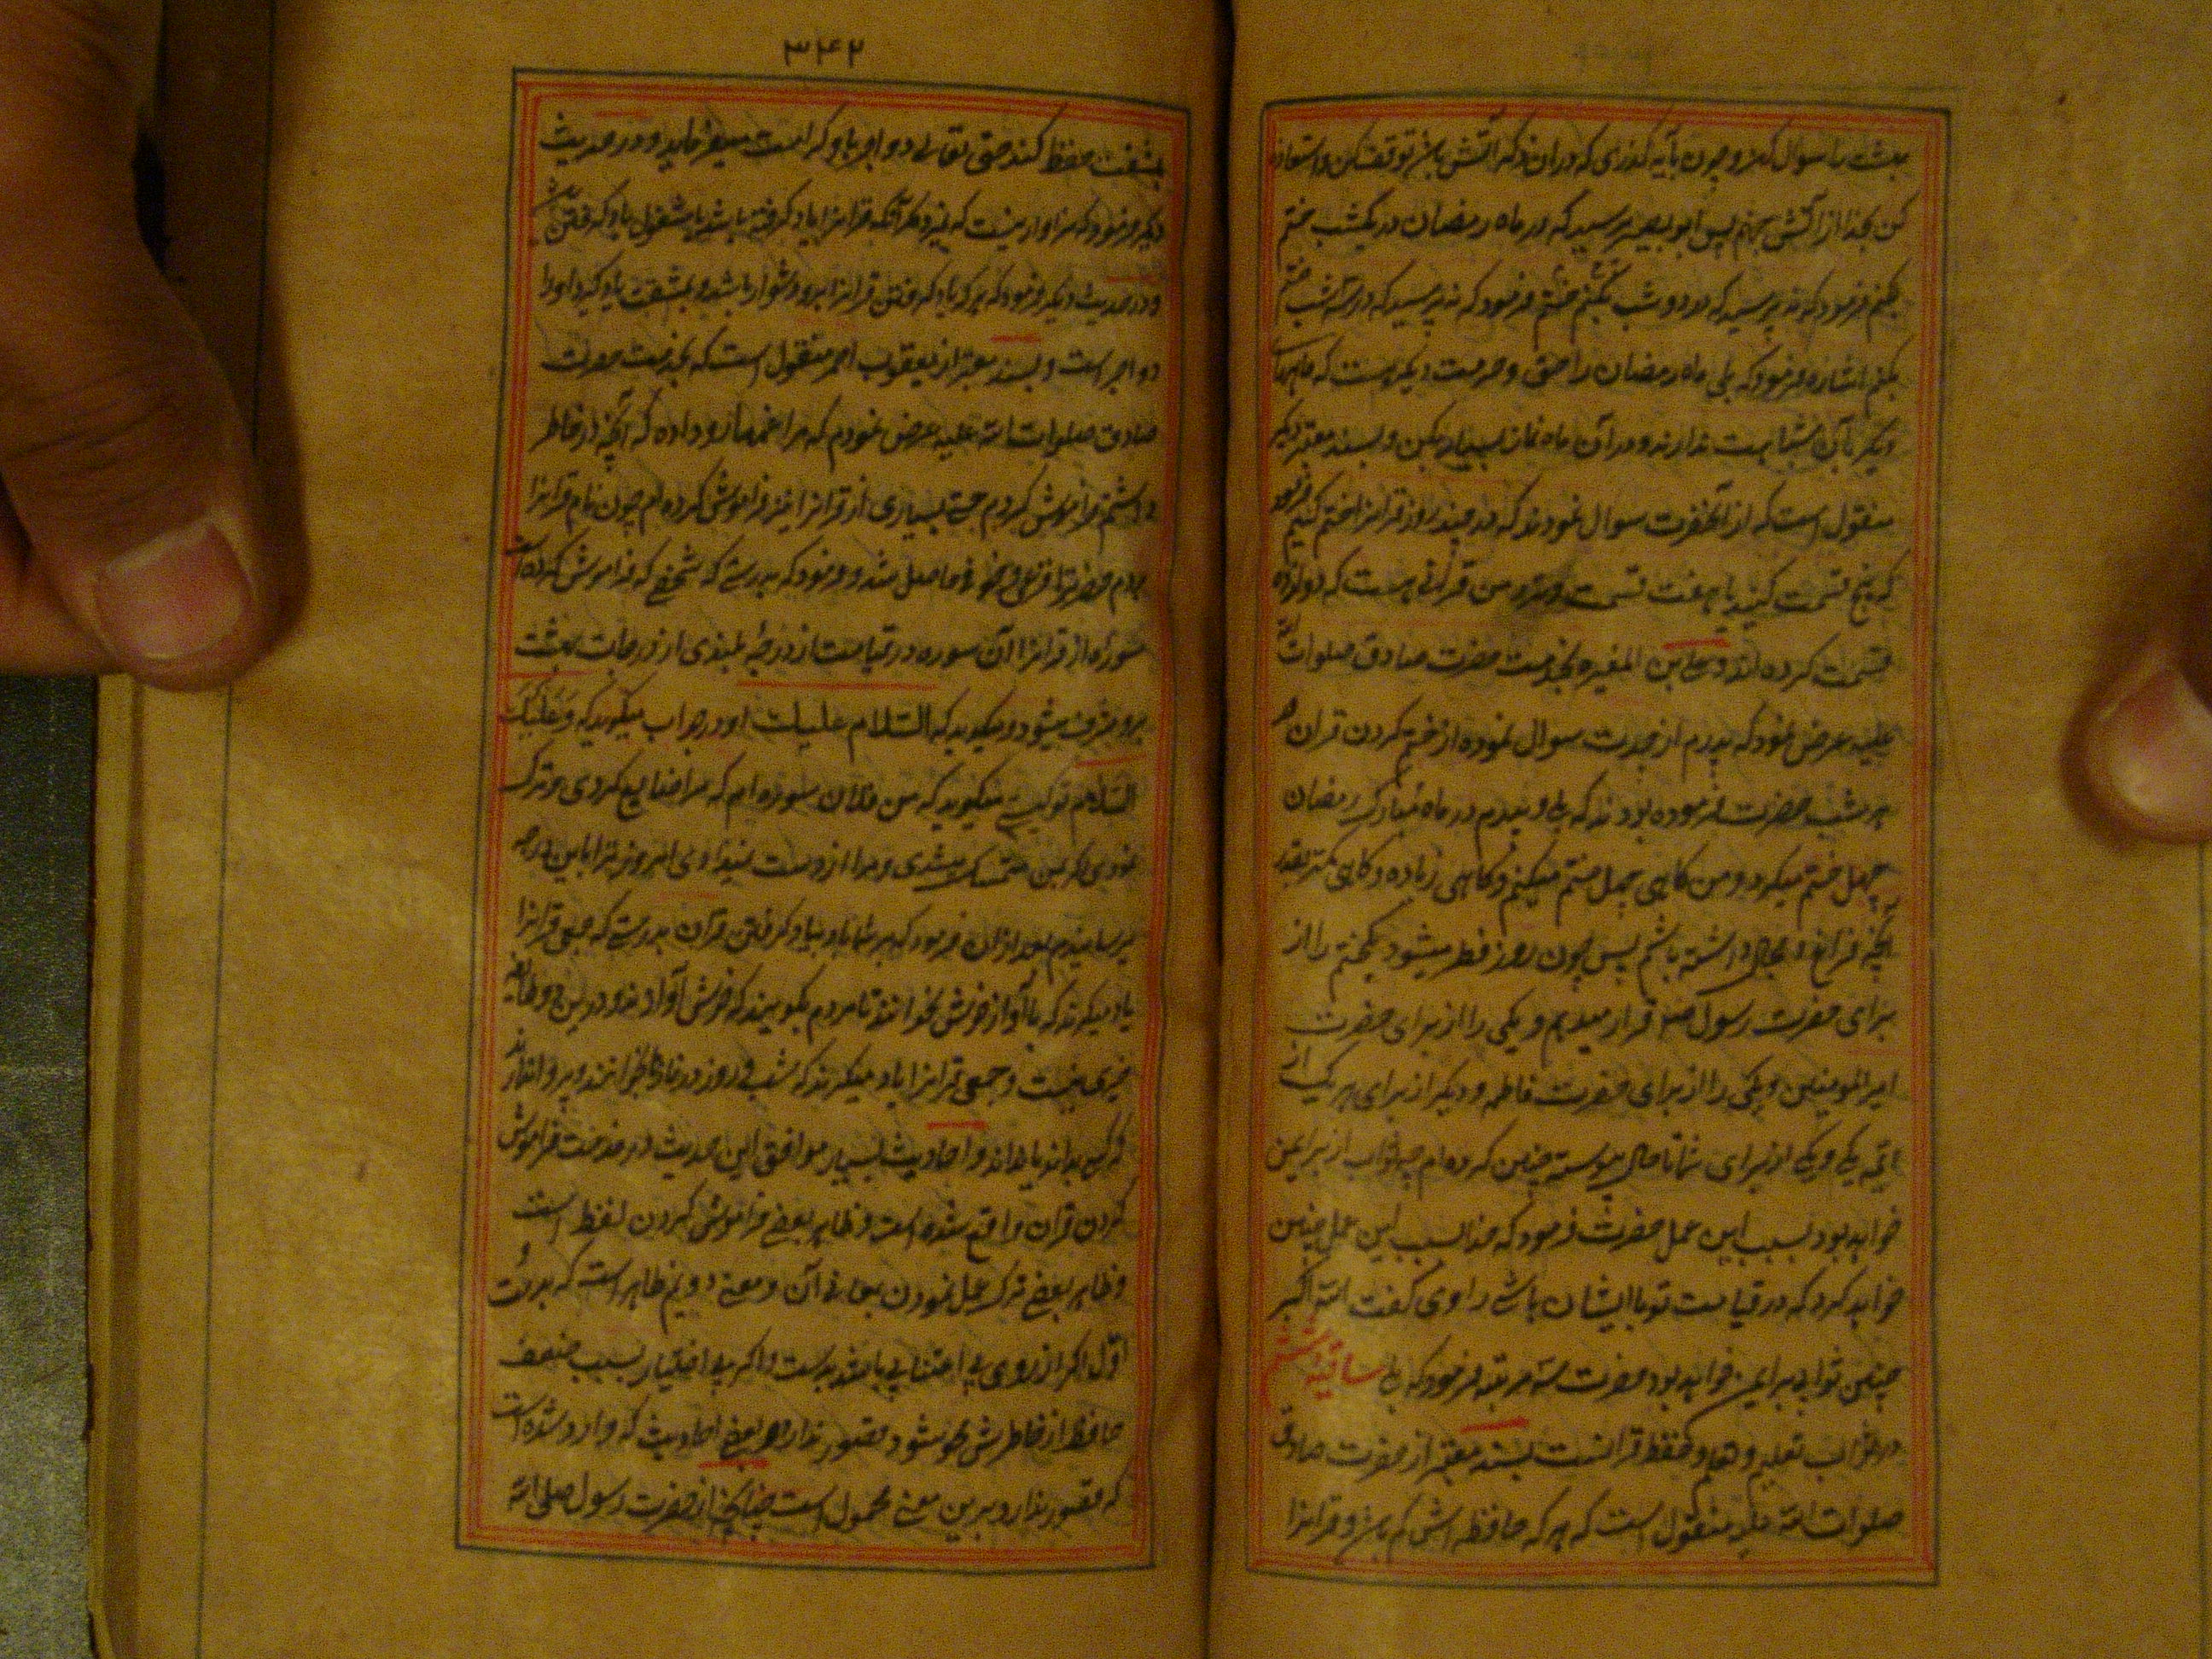 بهشت را سوال کن و چون بآیه کذری که در ان ذکر آتش باشد توقف کن و استعاذه
کن بخدا از آتش جهنم پس ابو بصیر پرسید که در ماه رمضان در یکشب ختم
بکنم فرمود که نه پرسید که در دو شب بکنم ختم فرمود که نه پرسید که در سه شب ختم
بکنم اشاره فرمود که بلی ماه رمضان را حقی و حرمت دیگر هست که ماههای
دیگر بآن شباهت ندارند و در آن ماه نماز بسیار بکن و بسند معتبر دیگر
منقول است که از آنحضرت سوال نمودند که در چند روز قرانرا ختم کنیم فرمود
که پنج قسمت کنید یا هفت قسمت و نزد من قرآنی هست که چهارده
قسمت کرده اند و علی بن المغیره بخدمت حضرت صادق صلوات الله
علیه عرض نمود که پدرم از جدت سوال نموده از ختم کردن قران در
هر شب حضرت فرموده بودند که بلی و پدرم در ماه مبارک رمضان
چهل ختم میکرد و من کاهی چهل ختم میکنم و کاهی زیاده و کاهی کمتر بقدر
آنچه فراغ و مجال داشته باشم پس چون روز فطر میشود یکختم را از
برای حضرت رسول ص قرار میدهم و یکی را از برای حضرت
امیر المومنین و یکی را از برای حضرت فاطمه و دیگر از برای هر یک از
ائمه یکی و یکی از برای شما تا حال پیوسته چنین کرده ام چه ثواب از برای من
خواهد بود بسبب این عمل حضرت فرمود که خدا بسبب این عمل چنین
خواهد کرد که در قیامت تو با ایشان باشی راوی گفت الله اکبر
چنین ثوابی برای من خواهد بود حضرت سه مرتبه فرمود که بلی ساقیه هشتم
در ثواب تعلیم و تعلم و حفظ قرانست بسند معتبر از حضرت صادق
صلوات الله علیه منقول است که هر که حافظه اش کم باشد و قرانرا
۳۴۲
بمشقت حفظ کند حق تعالی دو اجر باو کرامت میفرماید و در حدیث
دیگر فرمود که سزاوار نیست که بمیرد مگر آنکه قرانرا یاد گرفته باشد یا مشغول یاد گرفتن باشد
و در حدیث دیگر فرمود که هر که یاد گرفتن قرانرا برو دشوار باشد و بمشقت یاد گیرد او را
دو اجر است و بسند معتبر از یعقوب احمر منقول است که بخدمت حضرت
صادق صلوات الله علیه عرض نمودم که مرا غمها رو داده که آنچه در خاطر
داشتم فراموش کردم حتی بسیاری از قرانرا نیز فراموش کرده ام چون نام قرانرا
بردم حضرت را فزعی و خوفی حاصل شد و فرمود که بدرستی که شخصی که فراموش کرده است
سوره از قرانرا آن سوره در قیامت از درجه بلندی از درجات بهشت
برو مشرف میشود و میگوید که السلام علیک او در جواب میگوید که و علیک
السلام تو کیستی میگوید که من فلان سوره ام که مرا ضایع کردی و ترک
نمودی اگر بمن متمسک میشدی و مرا از دست نمیدادی امروز ترا باین درجه
میرسانیدم بعد از ان فرمود که بر شما باد بیاد گرفتن قران بدرستی که جمعی قرانرا
یاد میگیرند که باآواز خوش بخوانند تا مردم بگویند که خوش آوازند و درین دو طایفه
خیری نیست و جمعی قرانرا یاد میگیرند که شب و روز در نماز میخوانند و پروا ندارند
که کسی بداند یا نداند و احادیث بسیار موافق این حدیث در مذمت فراموش
کردن قران واقع شده است و ظاهر بعضی فراموشی کردن لفظ است
و ظاهر بعضی ترک عمل نمودن بمعانی آن و معنی دویم ظاهر است که بد است و
اول اگر از روی بی اعتنایی باشد بد است و اگر بی اختیار بسبب ضعف
حافظه از خاطرش محو شود قصور ندارد و بعضی احادیث که وارد شده است
که قصور ندارد برین معنی محمول است چنانچه از حضرت رسول صلی الله